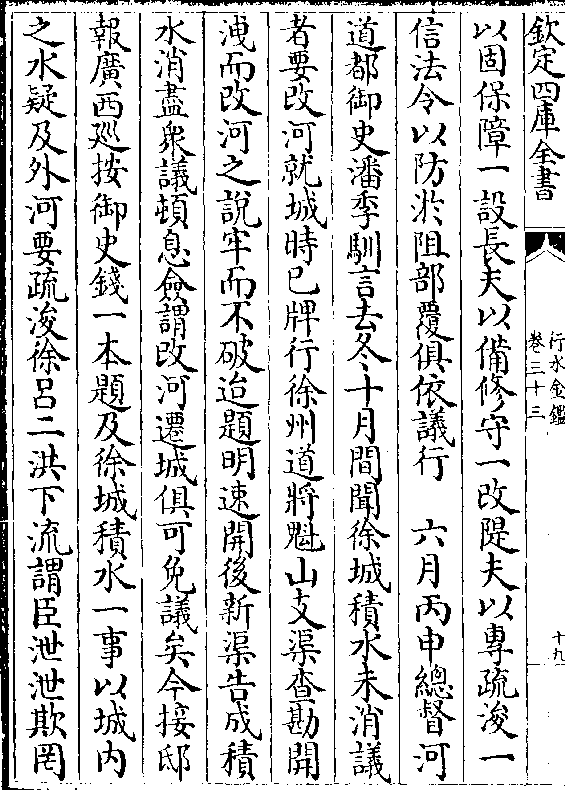 欽定四庫全書
行水金鑑
卷三十三
十九
以固保障一設長夫以備修守一改隄夫以專疏浚一
信法令以防淤阻部覆俱依議行　六月丙申總督河
道都御史潘季馴言去冬十月間聞徐城積水未消議
者要改河就城時已牌行徐州道將魁山支渠查勘開
洩而改河之說牢而不破迨題明速開後新渠告成積
水消盡衆議頓息僉謂改河遷城俱可免議矣今接邸
報廣西廵按御史錢一本題及徐城積水一事以城内
之水疑及外河要疏浚徐呂二洪下流謂臣泄泄欺罔